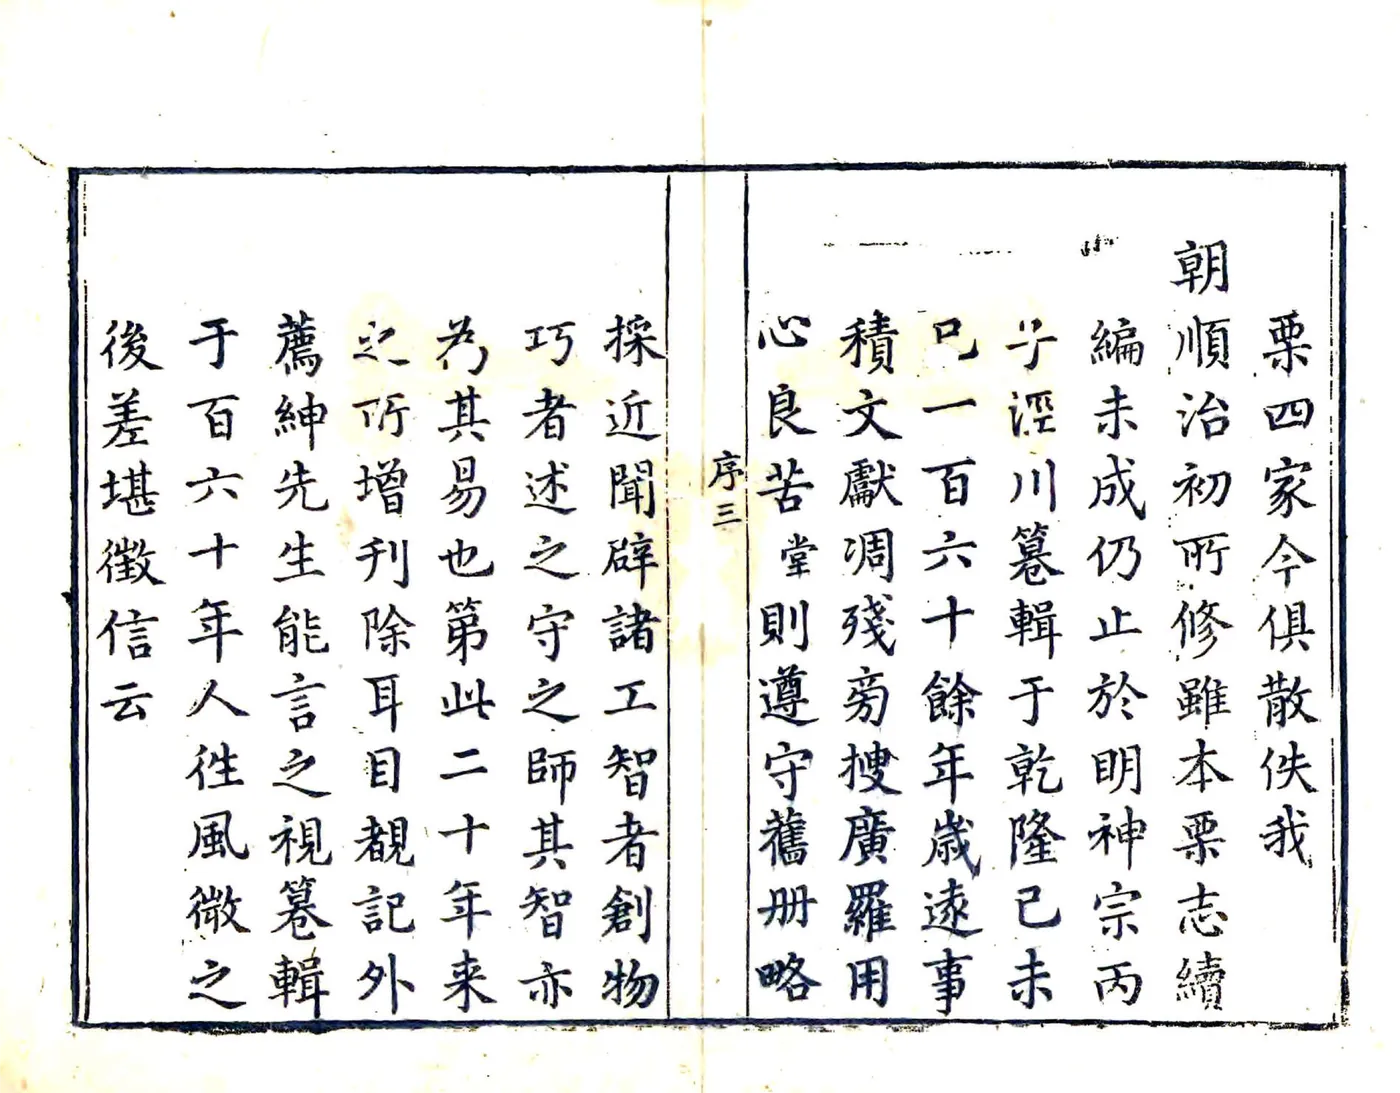 栗四家今俱散佚我
朝順治初所修雖本栗志續
編未成仍止於明神宗丙
子涇川纂輯于乾隆己未
已一百六十餘年歲遠事
積文獻凋殘旁搜廣羅用
心良苦堂則遵守舊册略
序三
採近聞辟諸工智者創物
巧者述之守之師其智亦
為其易也第此二十年来
之所增刋除耳目覩記外
薦紳先生能言之視纂輯
于百六十年人徃風微之
後差堪徵信云